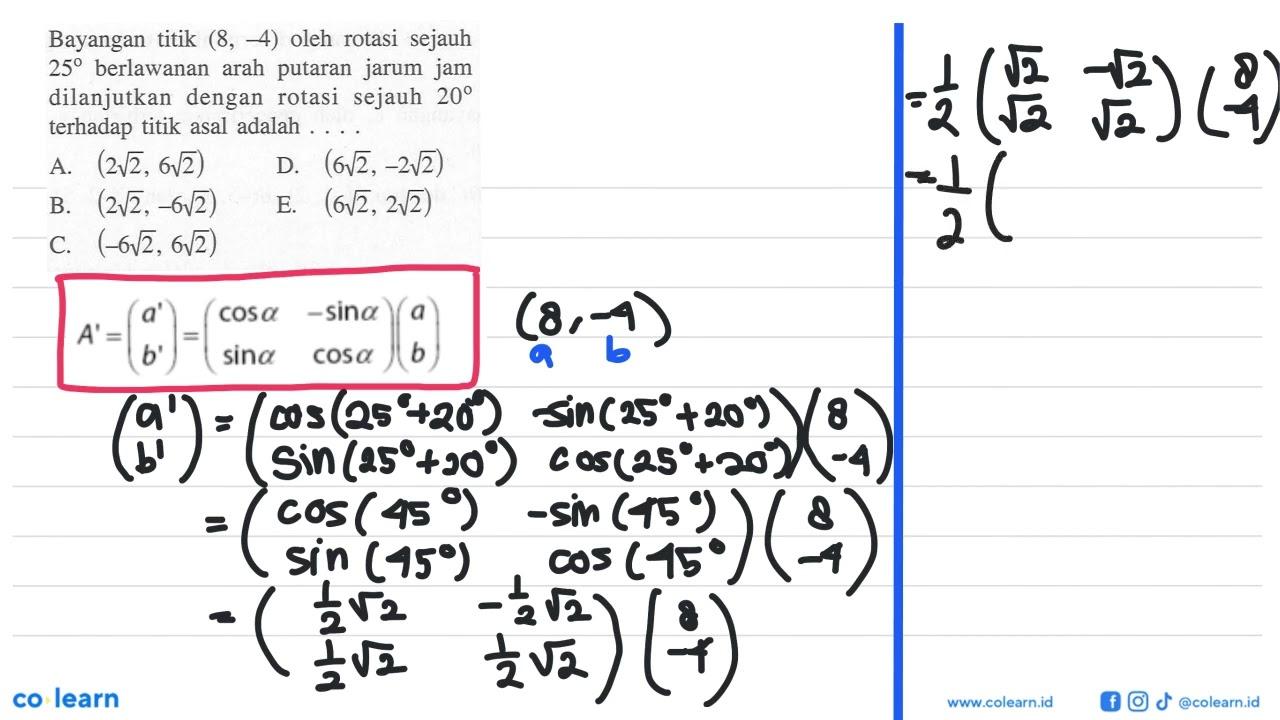 Bayangan titik (8, –4) oleh rotasi sejauh
25° berlawanan arah putaran jarum jam
dilanjutkan dengan rotasi sejauh 20°
terhadap titik asal adalah . . . .
A. (2√2, 6√2) D. (6√2, –2√2)
B. (2√2, –6√2) E. (6√2, 2√2)
C. (–6√2, 6√2)
A' = (a' b') = (cosα –sinα sinα cosα)(a b)
(8, -4)
a b
(a' b') = (cos(25°+20°) -sin(25°+20°)
sin(25°+20°) cos(25°+20°))(8 -4)
= (cos(45°) -sin(45°)
sin(45°) cos(45°)(8 -4)
= (1/2√2 -1/2√2
1/2√2 1/2√2)(8 -4)
= 1/2 (√2 -√2
√2 √2)(8 -4)
= 1/2 (
co learn
www.colearn.id @colearn.id